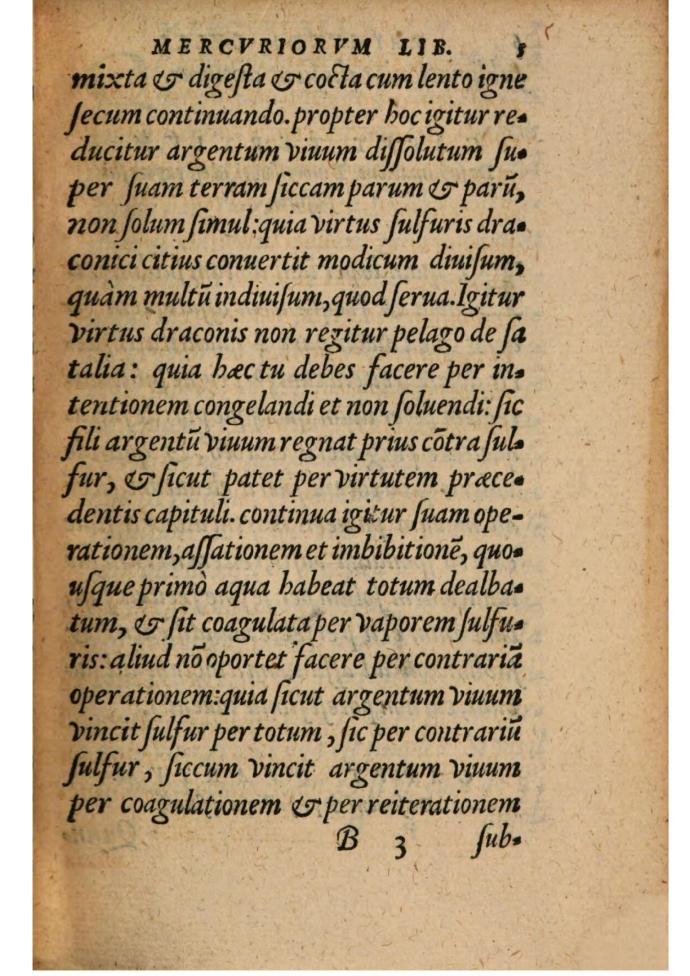 MERCVRIORVM LIB. 5
mixta & digeſta & cocta cum lento igne
ſecum continuando. propter hoc igitur re-
ducitur argentum viuum diſſolutum ſu-
per ſuam terram ſiccam parum & parū,
non ſolum ſimul: quia virtus ſulfuris dra-
conici citius conuertit modicum diuiſum,
quàm multū indiuiſum, quod ſerua. Igitur
virtus draconis non regitur pelago de ſa
talia: quia hæc tu debes facere per in-
tentionem congelandi et non ſoluendi: ſic
fili argentū viuum regnat prius cōtra ſul-
fur, & ſicut patet per virtutem præce-
dentis capituli. continua igitur ſuam ope-
rationem, aſſationem et imbibitionē, quo-
uſque primò aqua habeat totum dealba-
tum, & ſit coagulata per vaporem ſulfu-
ris: aliud nō oportet facere per contrariā
operationem: quia ſicut argentum viuum
vincit ſulfur per totum, ſic per contrariū
ſulfur, ſiccum vincit argentum viuum
per coagulationem & per reiterationem
B 3 ſub-